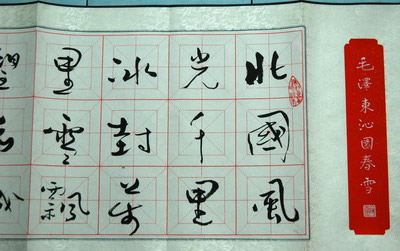 毛澤東沁园春雪
北國風
光千里
冰封萬
里雪飄